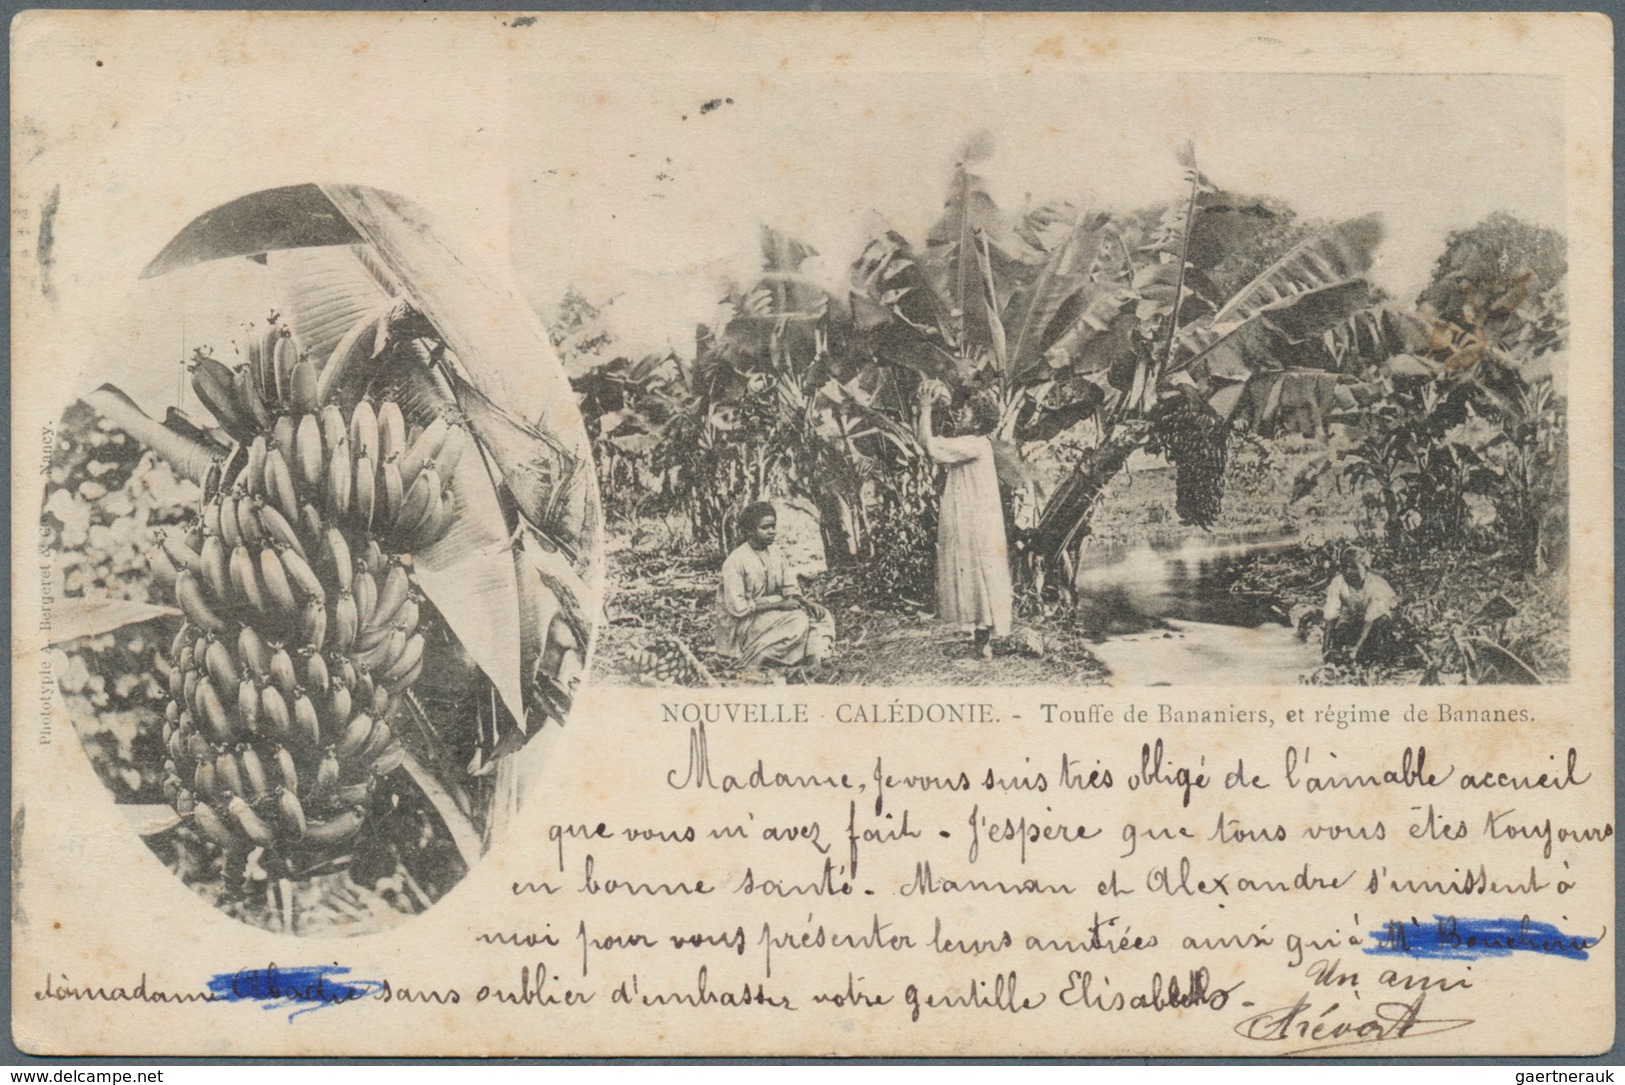 Phototypie A. Bergeret & Cie Nancy.
NOUVELLE - CALÉDONIE. - Touffe de Bananiers, et régime de Bananes.
Madame, je vous suis très obligé de l'aimable accueil
que vous m'avez fait - J'espère que tous vous êtes toujours
en bonne santé - Maman et Alexandre s'unissent à
moi pour vous présenter leurs amitiées ainsi qu'à Mr
et à madame Abadie sans oublier d'embrasser votre gentille Elisabeth -
Un ami
Prévost
delcampe.net
gaertnerauk